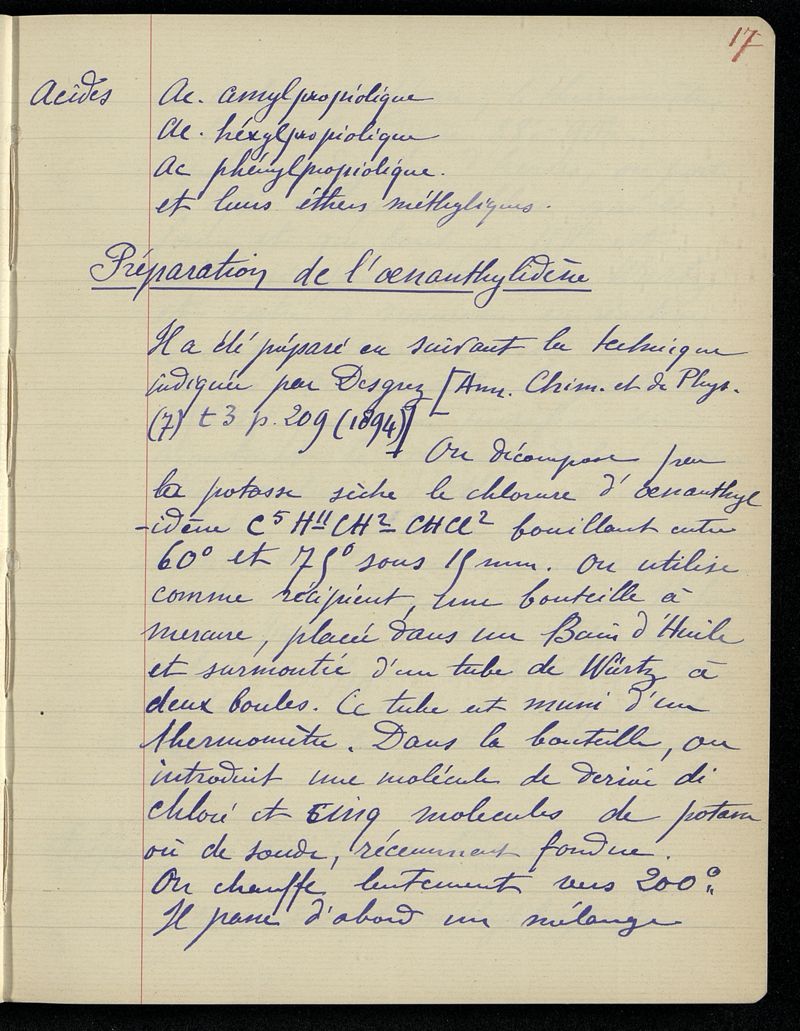 17
Acides Ac. amylpropiolique
Ac. héxylpropiolique
Ac phénylpropiolique.
et leurs éthers méthyliques.
Préparation de l'œnanthylidène
Il a été préparé en suivant la technique
indiquée par Desgrez [Ann. Chim. et de Phys.
(7) t 3 p. 209 (1894)]
On décompose par
la potasse sèche le chlorure d'œnanthyl
-idène C⁵H¹¹CH²-CHCl² bouillant entre
60° et 75° sous 15 mm. On utilise
comme récipient, une bouteille à
mercure, placée dans un Bain d'Huile
et surmontée d'un tube de Würtz à
deux boules. Ce tube est muni d'un
thermomètre. Dans la bouteille, on
introduit une molécule de derivé di
chloré et cinq molecules de potasse
ou de soude, récemment fondue.
On chauffe lentement vers 200°.
Il passe d'abord un mélange